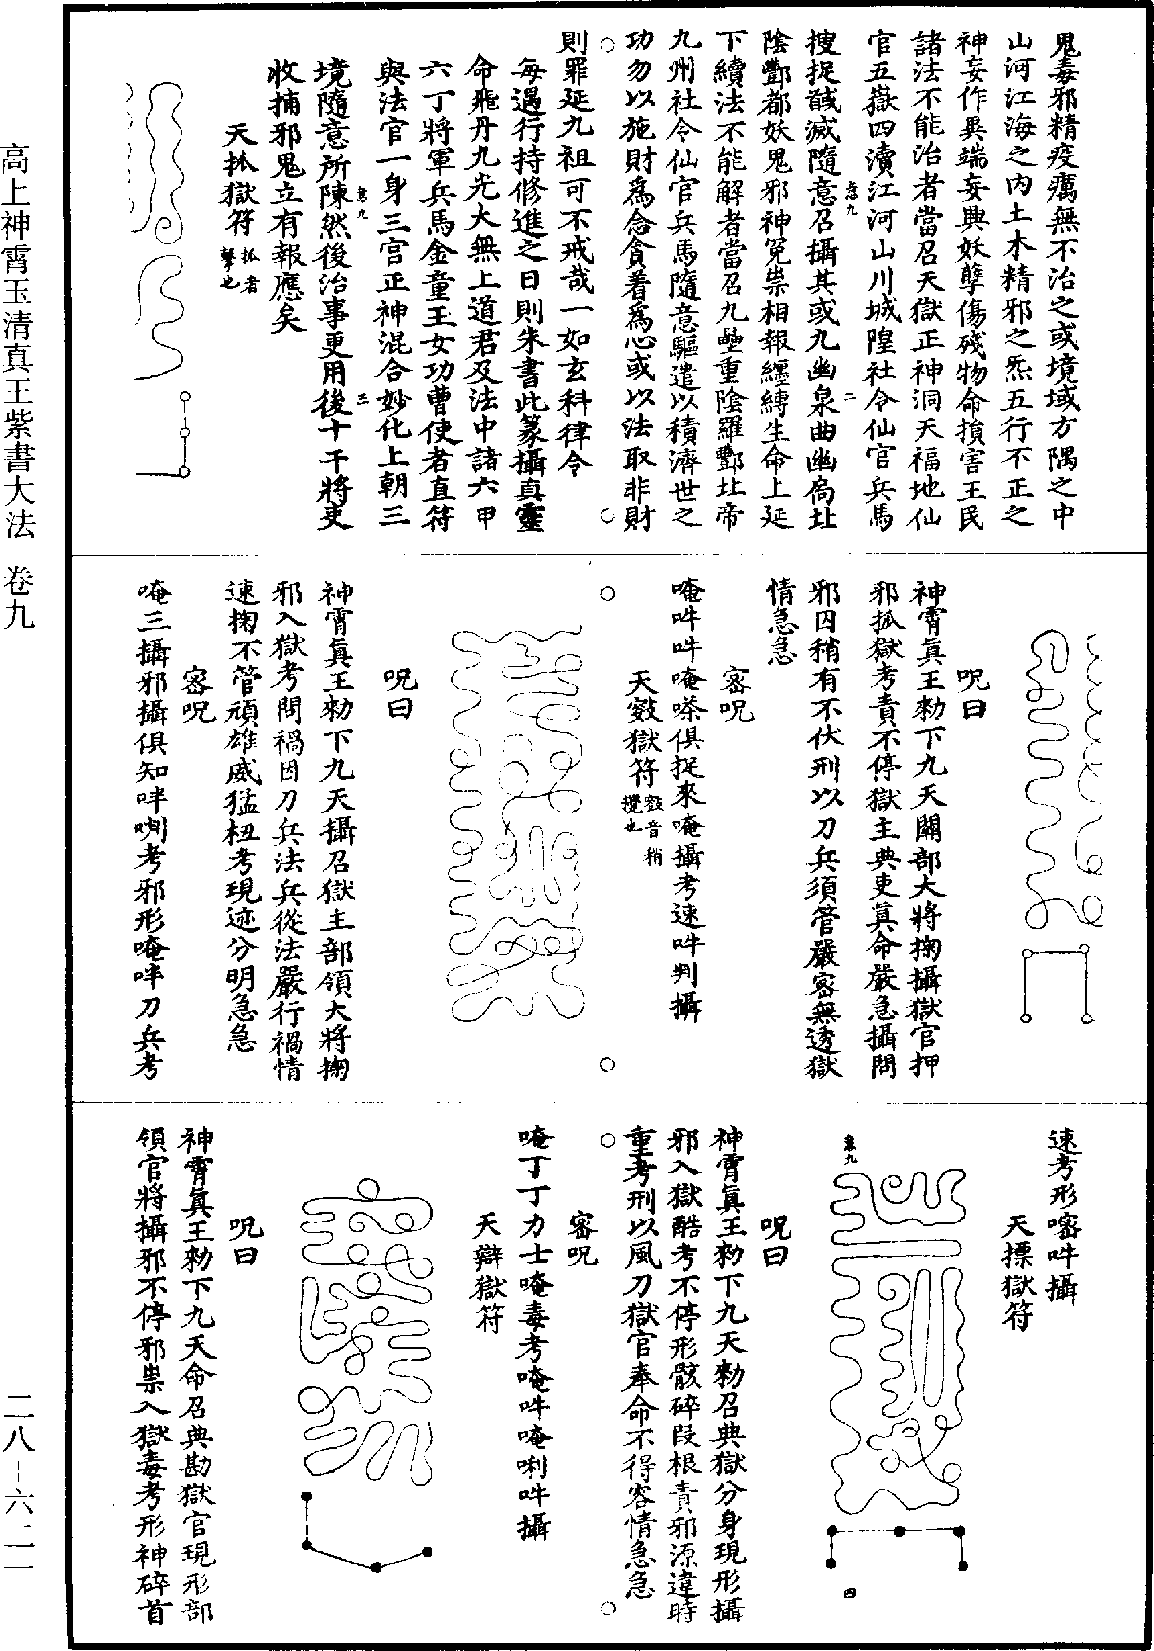 鬼毒邪精疫癘無不治之或境域方隅之中
山河江海之内土木精邪之炁五行不正之
神妄作異端妄興妖孽傷殘物命損害王民
諸法不能治者當召天獄正神洞天福地仙
官五嶽四瀆江河山川城隍社令仙官兵馬
搜捉馘滅隨意召攝其或九幽泉曲幽扃北
陰酆都妖鬼邪神冤祟相報纏縛生命上延
下續法不能解者當召九壘重陰羅酆北帝
九州社令仙官兵馬隨意驅遣以積濟世之
功勿以施財爲念貪着爲心或以法取非財
則罪延九祖可不戒哉一如玄科律令
每遇行持修進之日則朱書此篆攝真靈
命飛丹九光大無上道君及法中諸六甲
六丁將軍兵馬金童玉女功曹使者直符
與法官一身三宮正神混合妙化上朝三
境隨意所陳然後治事更用後十千將吏
收捕邪鬼立有報應矣
天抓獄符 抓者擊也
呪曰
神霄真王勑下九天關部大將掬攝獄官押
邪抓獄考責不停獄主典吏真命嚴急攝問
邪囚稍有不伏刑以刀兵須管嚴密無透獄
情急急
密呪
唵吽吽唵嗏俱捉來唵攝考速吽判攝
天獄符 音稍攪也
呪曰
神霄真王勑下九天攝召獄主部領大將掬
邪入獄考問禍因刀兵法兵從法嚴行禍情
速掬不管頑雄威猛杻考現迹分明急急
密呪
唵三攝邪攝俱知吽唎考邪形唵吽刀兵考
速考形嚓吽攝
天摽獄符
呪曰
神霄真王勑下九天勑召典獄分身現形攝
邪入獄酷考不停形骸碎段根責邪源違時
重考刑以風刀獄官奉命不得容情急急
密呪
唵丁丁力士唵毒考唵吽唵唎吽攝
天辯獄符
呪曰
神霄真王勑下九天命召典勘獄官現形部
領官將攝邪不停邪祟入獄毒考形神碎首
高上神霄玉清真王紫書大法 卷九
二八—六二一